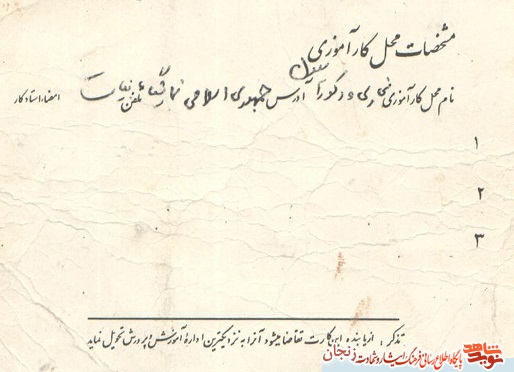 مشخصات محل کارآموزی
نام محل کارآموزی آدرس جمهوری اسلامی تلفن امضاء استاد کار
۱
۲
۳
تذکر: از یابنده این کارت تقاضا میشود آنرا به نزدیکترین اداره آموزش و پرورش تحویل نماید
نوید شاهد پایگاه اطلاع رسانی فرهنگ ایثار و شهادت زنجان